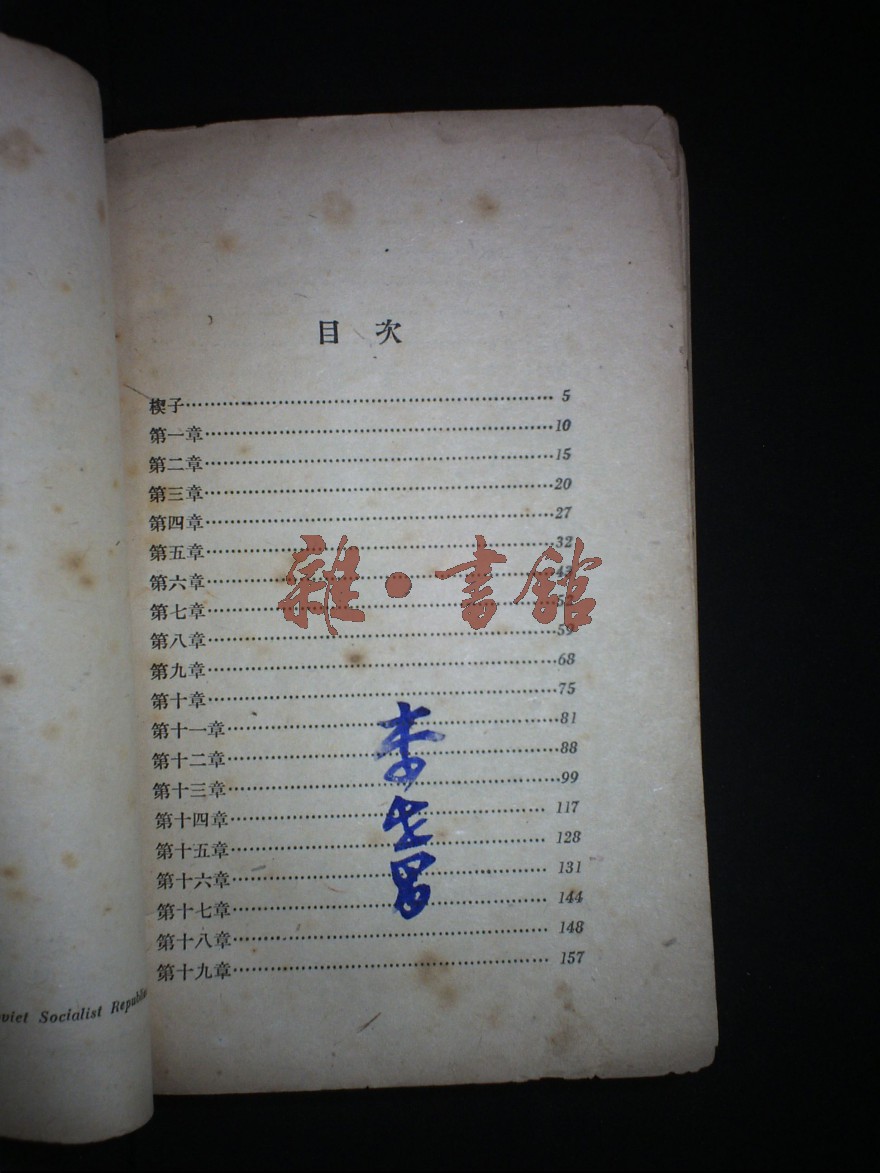 目 次
楔子 5
第一章 10
第二章 15
第三章 20
第四章 27
第五章 32
第六章 43
第七章
第八章 59
第九章 68
第十章 75
第十一章 81
第十二章 88
第十三章 99
第十四章 117
第十五章 128
第十六章 131
第十七章 144
第十八章 148
第十九章 157
雜·書館
viet Socialist Republic